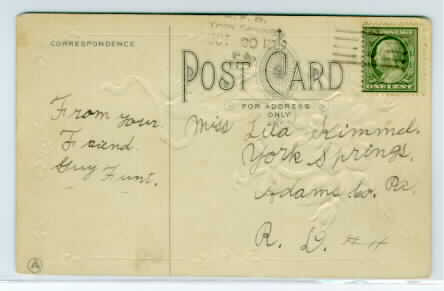 CORRESPONDENCE
POST CARD
FOR ADDRESS
ONLY
From Your
Friend
Guy Funt.
Miss Lila Kimmel.
York Springs,
Adams Co. Pa.
R. D. # 4
ONE CENT
A